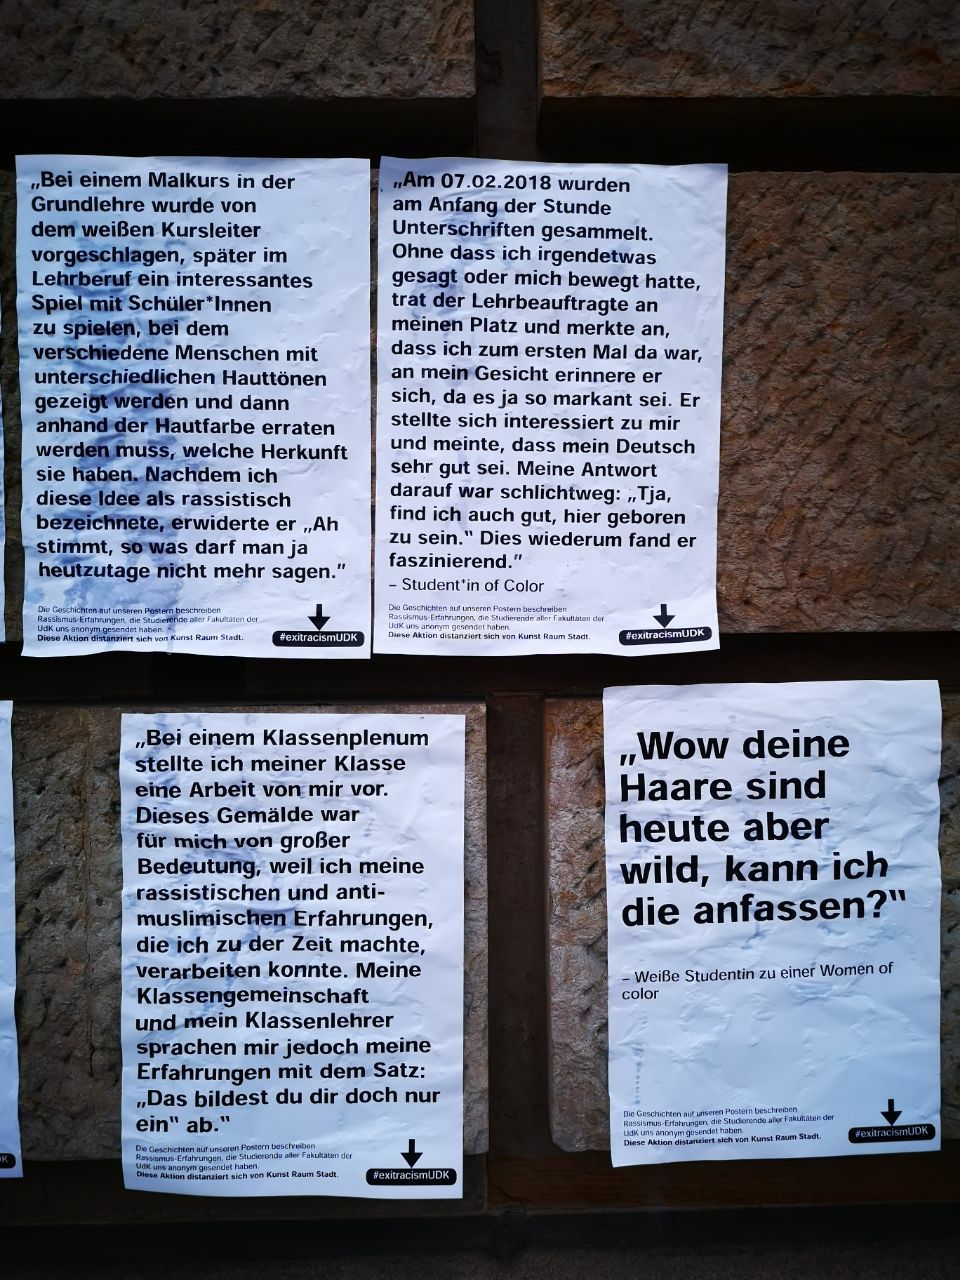 „Bei einem Malkurs in der
Grundlehre wurde von
dem weißen Kursleiter
vorgeschlagen, später im
Lehrberuf ein interessantes
Spiel mit Schüler*Innen
zu spielen, bei dem
verschiedene Menschen mit
unterschiedlichen Hauttönen
gezeigt werden und dann
anhand der Hautfarbe erraten
werden muss, welche Herkunft
sie haben. Nachdem ich
diese Idee als rassistisch
bezeichnete, erwiderte er „Ah
stimmt, so was darf man ja
heutzutage nicht mehr sagen.”
Die Geschichten auf unseren Postern beschreiben
Rassismus-Erfahrungen, die Studierende aller Fakultäten der
UdK uns anonym gesendet haben.
Diese Aktion distanziert sich von Kunst Raum Stadt.
#exitracismUDK
„Am 07.02.2018 wurden
am Anfang der Stunde
Unterschriften gesammelt.
Ohne dass ich irgendetwas
gesagt oder mich bewegt hatte,
trat der Lehrbeauftragte an
meinen Platz und merkte an,
dass ich zum ersten Mal da war,
an mein Gesicht erinnere er
sich, da es ja so markant sei. Er
stellte sich interessiert zu mir
und meinte, dass mein Deutsch
sehr gut sei. Meine Antwort
darauf war schlichtweg: „Tja,
find ich auch gut, hier geboren
zu sein.“ Dies wiederum fand er
faszinierend.”
– Student*in of Color
Die Geschichten auf unseren Postern beschreiben
Rassismus-Erfahrungen, die Studierende aller Fakultäten der
UdK uns anonym gesendet haben.
Diese Aktion distanziert sich von Kunst Raum Stadt.
#exitracismUDK
„Bei einem Klassenplenum
stellte ich meiner Klasse
eine Arbeit von mir vor.
Dieses Gemälde war
für mich von großer
Bedeutung, weil ich meine
rassistischen und anti-
muslimischen Erfahrungen,
die ich zu der Zeit machte,
verarbeiten konnte. Meine
Klassengemeinschaft
und mein Klassenlehrer
sprachen mir jedoch meine
Erfahrungen mit dem Satz:
„Das bildest du dir doch nur
ein“ ab.“
Die Geschichten auf unseren Postern beschreiben
Rassismus-Erfahrungen, die Studierende aller Fakultäten der
UdK uns anonym gesendet haben.
Diese Aktion distanziert sich von Kunst Raum Stadt.
#exitracismUDK
„Wow deine
Haare sind
heute aber
wild, kann ich
die anfassen?“
– Weiße Studentin zu einer Women of
color
Die Geschichten auf unseren Postern beschreiben
Rassismus-Erfahrungen, die Studierende aller Fakultäten der
UdK uns anonym gesendet haben.
Diese Aktion distanziert sich von Kunst Raum Stadt.
#exitracismUDK